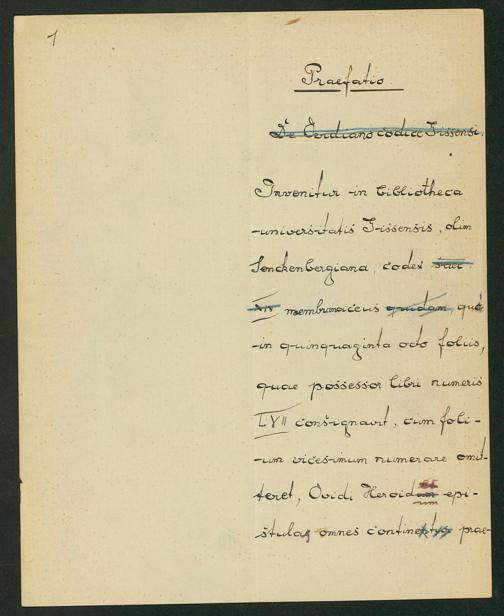 1
Praefatio.
De Ovidiano codice Gissensi.
Invenitur in bibliotheca
universitatis Gissensis, olim
Senckenbergiana, codex saec.
XIV membranaceus quidam, qui
in quinquaginta octo foliis,
quae possessor libri numeris
LVII consignavit, cum foli-
um vicesimum numerare omit-
teret, Ovidi Heroidum epi-
stulas omnes continet prae-